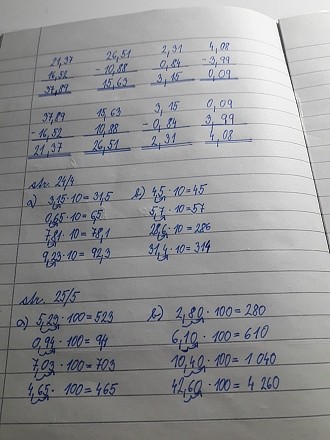 21,37 26,51 2,31 4,08
16,52 - 10,88 0,84 - 3,99
37,89 15,63 3,15 0,09
37,89 15,63 3,15 0,09
- 16,52 10,88 - 0,84 3,99
21,37 26,51 2,31 4,08
str. 24/4
a) 3,15 · 10 = 31,5 b) 4,5 · 10 = 45
0,65 · 10 = 6,5 5,7 · 10 = 57
7,81 · 10 = 78,1 28,6 · 10 = 286
9,23 · 10 = 92,3 31,4 · 10 = 314
str. 25/5
a) 5,23 · 100 = 523 b) 2,80 · 100 = 280
0,94 · 100 = 94 6,10 · 100 = 610
7,03 · 100 = 703 10,40 · 100 = 1 040
4,65 · 100 = 465 42,60 · 100 = 4 260